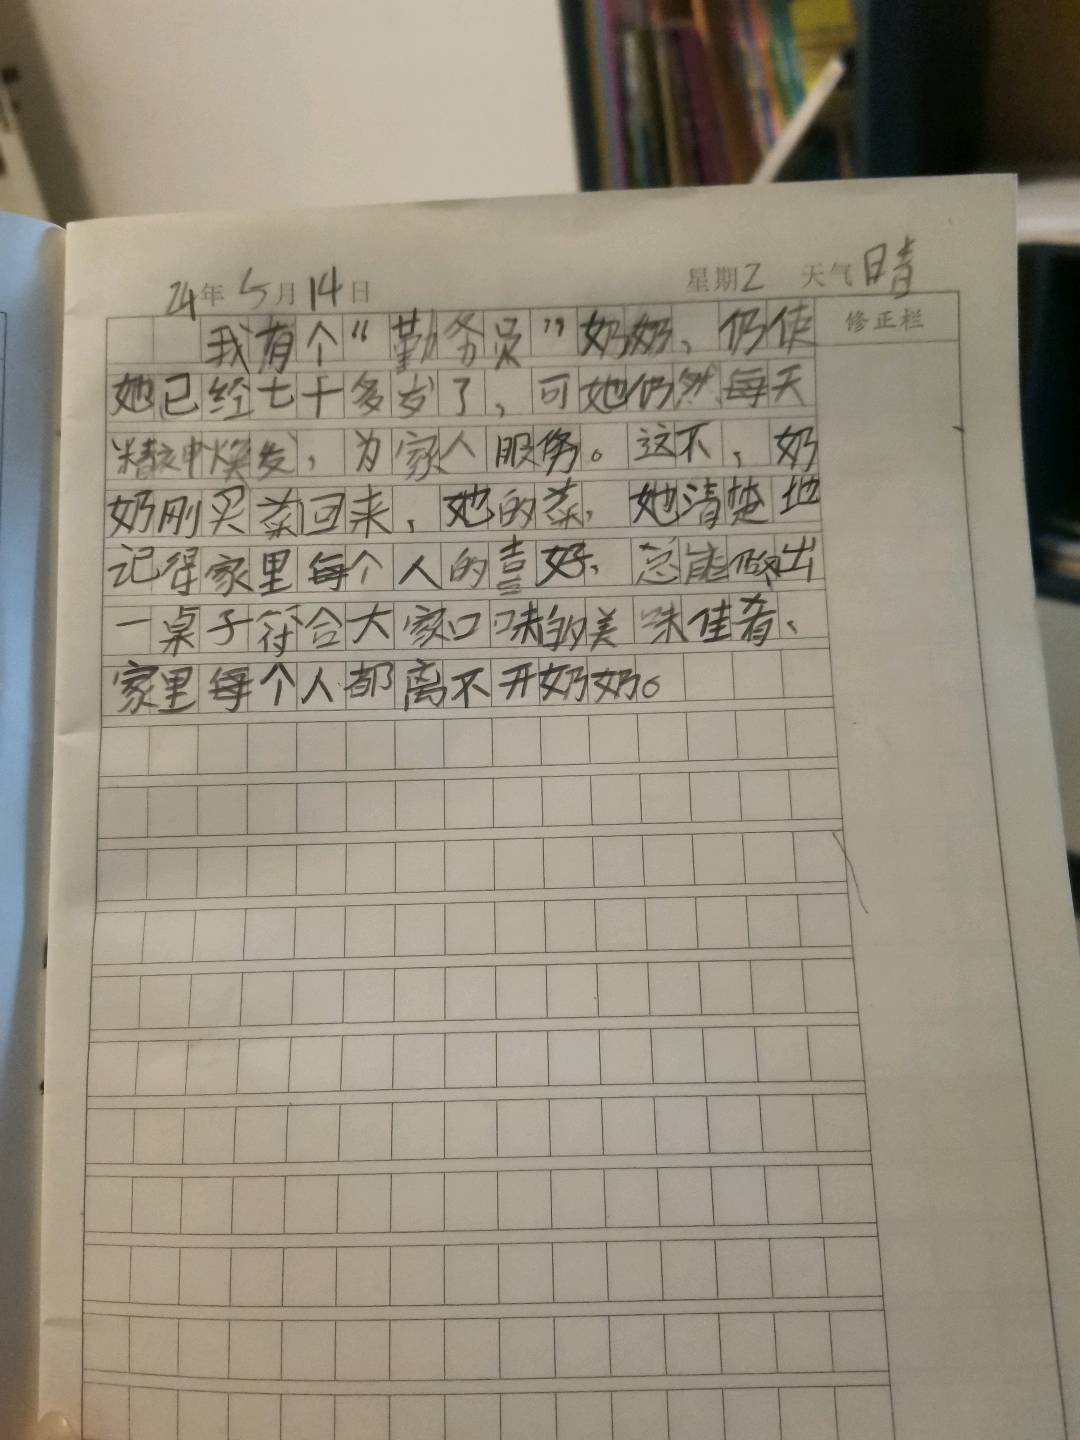 24年5月14日 星期2 天气晴
我有个“勤务员”奶奶、仍使 修正栏
她已经七十多岁了，可她仍然每天
精神焕发，为家人服务。这不，奶
奶刚买菜回来，她的菜，她清楚地
记得家里每个人的喜好、总能做出
一桌子符合大家口味的美味佳肴、
家里每个人都离不开奶奶。